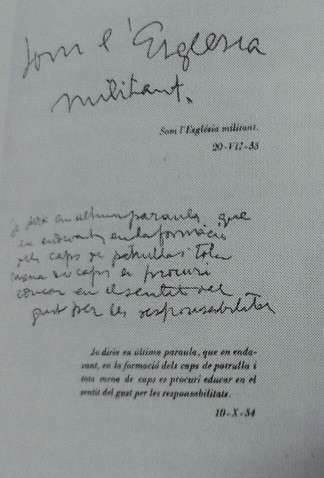 Som l'Església
militant.
Som l'Església militant.
20-VII-53
Jo diria en última paraula, que
en endavant, en la formació
dels caps de patrulla i tota
mena de caps es procuri
educar en el sentit del
gust per les responsabilitats
Jo diria en última paraula, que en enda-
vant, en la formació dels caps de patrulla i
tota mena de caps es procuri educar en el
sentit del gust per les responsabilitats.
10-X-54